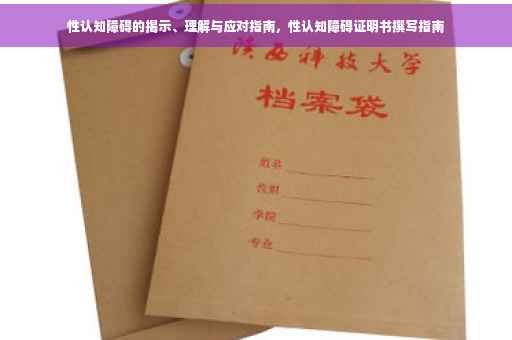 性认知障碍的揭示、理解与应对指南，性认知障碍证明书撰写指南
陕西科技大学
档案袋
姓名
班别
学院
专业